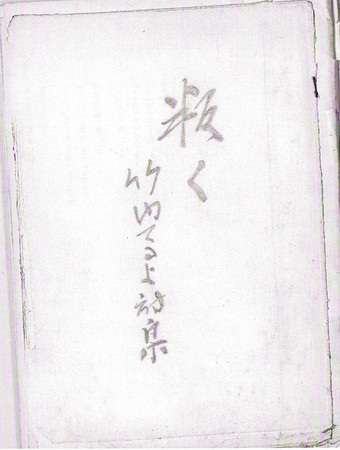 叛く
竹内てるよ詩集